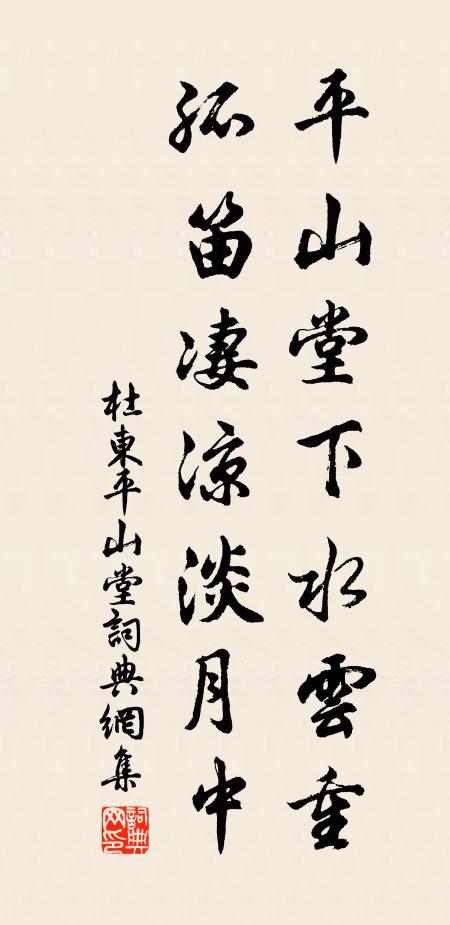 平山堂下水雲重
孤笛凄涼淡月中
杜東平山堂詞典網集
詞典網印